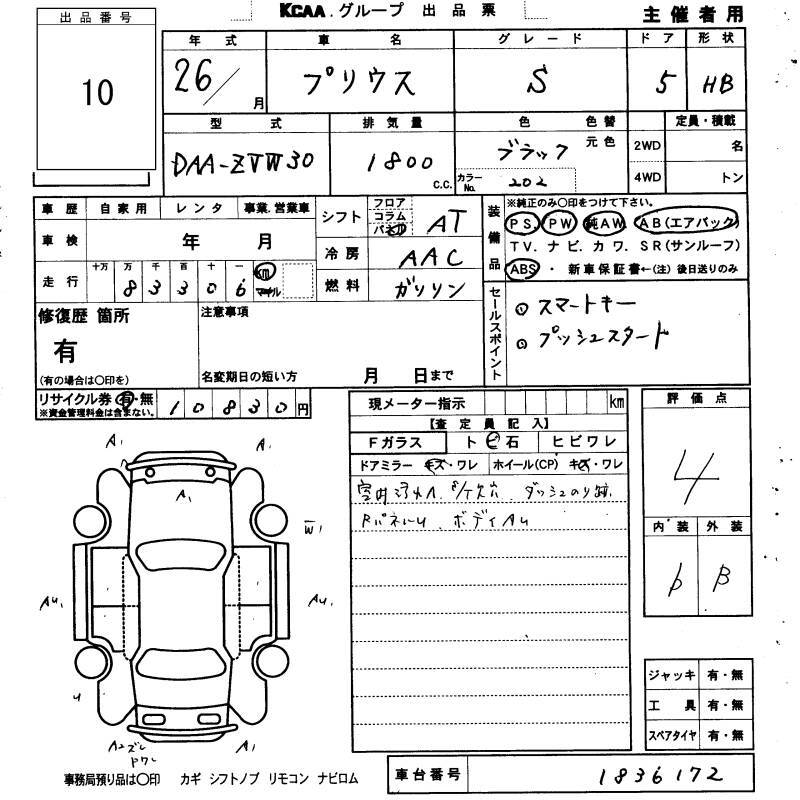 KCAA.グループ 出品票
主催者用
出品番号
10
年式 車名 グレード ドア 形状
26/ 月 プリウス S 5 HB
型式 排気量 色 色替 定員・積載
DAA-ZVW30 1800 C.C. ブラック 元色 2WD 名
カラーNo. 202 4WD トン
車歴 自家用 レンタ 事業,営業車
車検 年 月
走行 十万 万 千 百 十 一 km マイル
83306
シフト フロア コラム パネル AT
冷房 AAC
燃料 ガソリン
装備品
※純正のみ〇印をつけて下さい。
PS. PW 純AW. AB(エアバック)
TV. ナビ. カワ. SR(サンルーフ)
ABS ・ 新車保証書←(注)後日送りのみ
修復歴 箇所
有
(有の場合は〇印を)
注意事項
名変期日の短い方 月 日まで
セールスポイント
スマートキー
プッシュスタート
リサイクル券 有・無 10830円
※資金管理料金は含まない。
現メーター指示 km
【査定員記入】
Fガラス ト ビ 石 ヒビワレ
ドアミラー キズ・ワレ ホイール(CP) キズ・ワレ
ダッシュのり跡
RパネルU ボディAU
評価点
4
内装 外装
B
A1 A1
A1
W1
AU1 AU1
U
A2ズレ
PワレA1
ジャッキ 有・無
工具 有・無
スペアタイヤ 有・無
事務局預り品は〇印 カギ シフトノブ リモコン ナビロム
車台番号 1836172